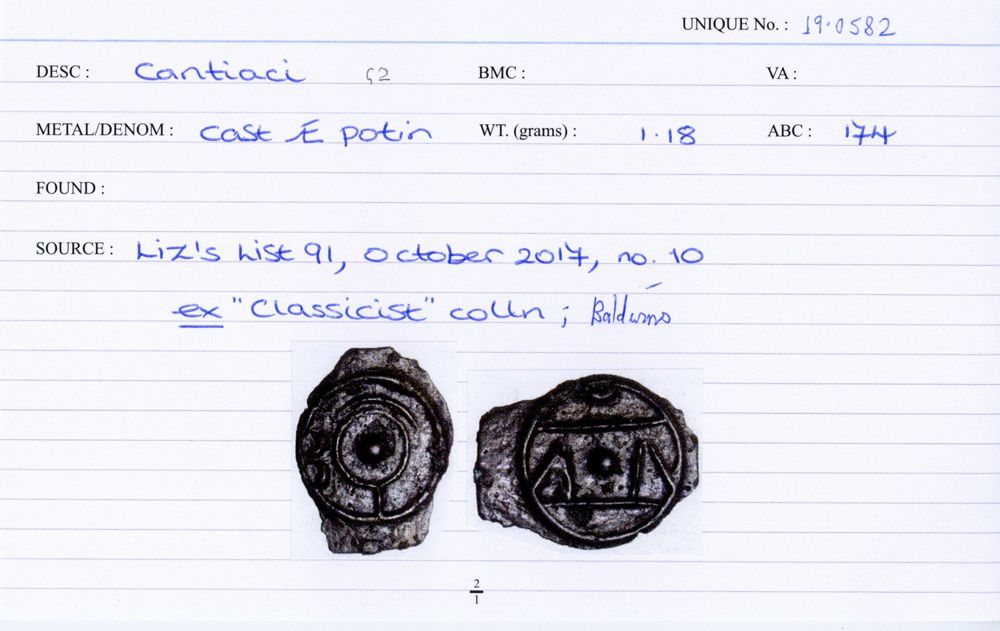 UNIQUE No. : 19.0582
DESC : Cantiaci G2 BMC : VA :
METAL/DENOM : Cast Æ potin WT. (grams) : 1.18 ABC : 174
FOUND :
SOURCE : Liz's List 91, October 2017, no. 10
ex "Classicist" colln ; Baldwins
2
1